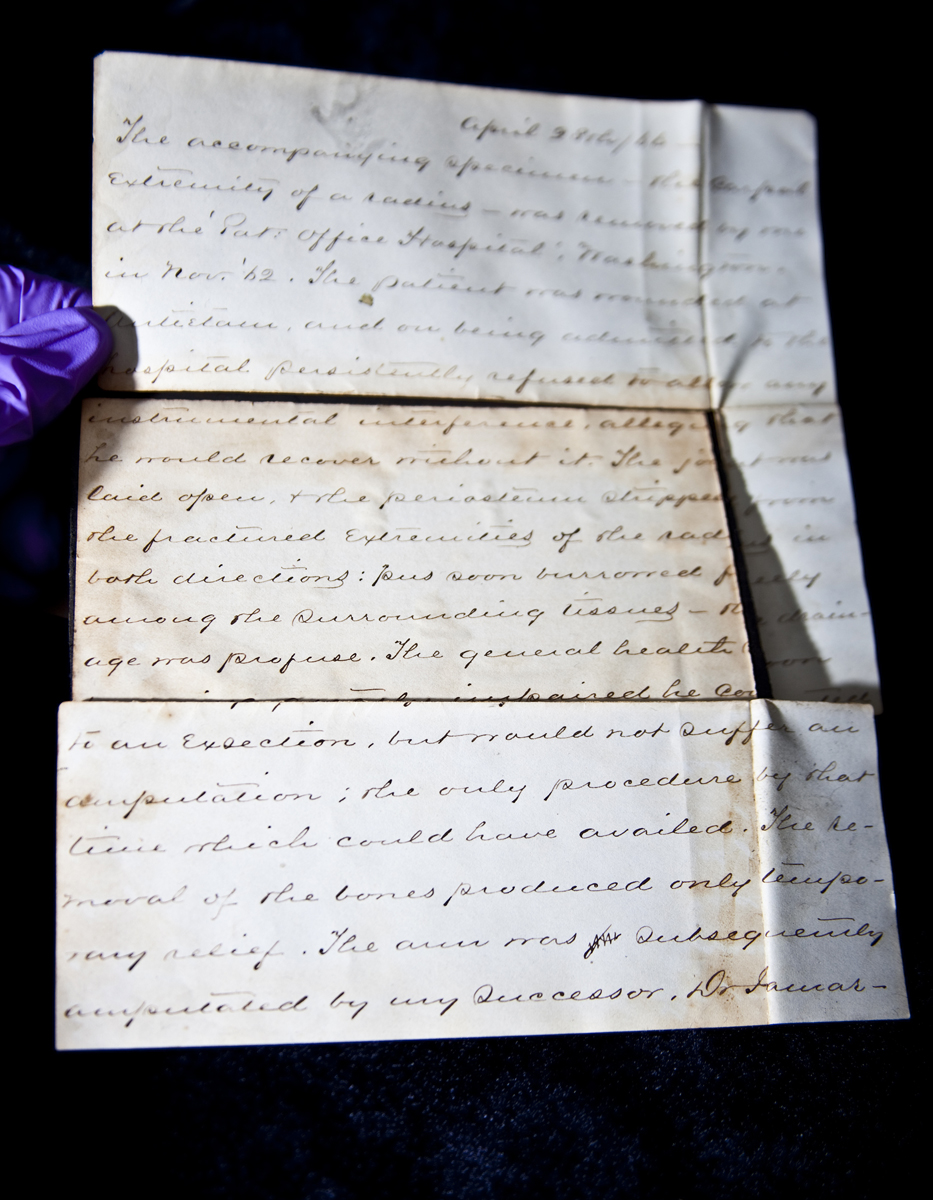 April 30th/66 —
The accompanying specimen — the Carpal
Extremity of a radius — was removed by me
at the 'Pat: Office Hospital', Washington.
in Nov. '62. The patient was wounded at
Antietam, and on being admitted to the
hospital persistently refused to allow any
instrumental interference, alleging that
he would recover without it. The joint was
laid open, & the periosteum stripped from
the fractured Extremities of the radius in
both directions: pus soon burrowed freely
among the surrounding tissues — the drain-
age was profuse. The general health
impaired he
to an Exsection, but would not suffer an
amputation; the only procedure by that
time which could have availed. The re-
moval of the bones produced only tempo-
rary relief. The arm was subsequently
amputated by my Successor, Dr